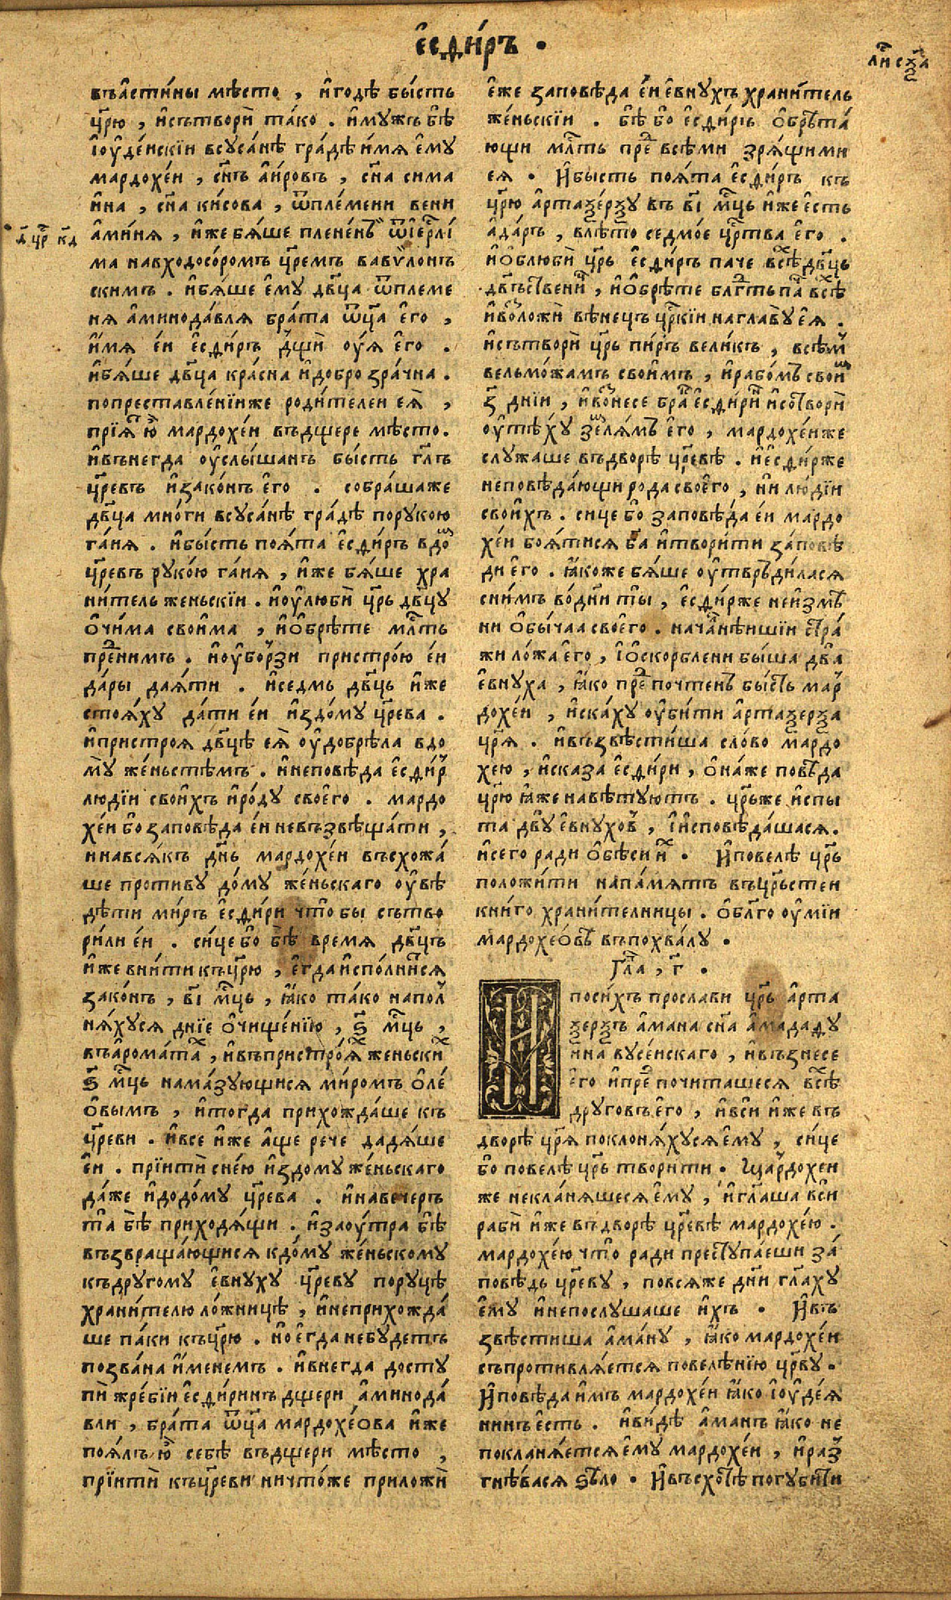 есѳи́ръ .
въа҆сти́ны мѣсто , и҆годѣ бы́сть
цр҃ю , и҆сътвори̏ та́ко . и҆мужъ бѣ
і҆оу҆де́искїи всуса́нѣ гра́дѣ и҆́мя е҆му
мардохе́и , сн҃ъ а҆и́ровъ , сн҃а сима
и҆на , сн҃а ки́сова , ѿпле́мени вени
ами́ня , и҆́же бя́ше плене́нъ ѿіе҆рлⷭ҇і
д҃ , цр҃ , к҃д
ма навходосо́ромъ цр҃емъ вавѷло́нъ
скимъ . и҆бя́ше е҆му дв҃ца ѿплеме
ня а҆минода́вля бра́та ѿц҃а е҆го ,
и҆́мя е҆и е҆сѳи́ръ дщи̏ оу҆́я е҆го .
и҆бя́ше дв҃ца кра́сна и҆добро зра́чна .
попреставле́нїиже роди́телеи ея̏ ,
прїя́тъ ю҆̀ мардохе́и въдщере мѣ́сто.
и҆вънегда оу҆слы́шанъ бы́сть гл҃ъ
цр҃евъ и҆зако́нъ е҆го . собра́шаже
дв҃ца мно́ги всуса́нѣ гра́дѣ порукою
га́ия . и҆бы́сть поя́та е҆сѳи́ръ вдоⷨ
цр҃евъ руко́ю га́ия , и҆́же бя́ше хра
ни́тель женьскїи . и҆оу҆любѝ цр҃ь дв҃цу
о҆чи́ма свои́ма , и҆о҆брѣ́те млⷭ҇ть
преⷣни́мъ . и҆оу҆бо́рзи пристро́ю е҆и
да́ры дая́ти . и҆се́дмь дв҃ць и҆́же
стоя́ху да́ти е҆и и҆здо́му цр҃ева .
и҆пристро́я дв҃цѣ ея̏ оу҆добрѣ́ла вдо
му̏ же́ньстѣмъ . и҆неповѣ́да е҆сѳи́рь
лю́дїи свои́хъ и҆ро́ду своего̏ . мардо
хе́и бо заповѣ́да е҆и невъзвѣща́ти ,
и҆нався́къ дн҃ь мардохе́и въсхожа́
ше проти́ву до́му же́ньскаго оу҆вѣ
дѣти ми́ръ е҆сѳи́ри что̀бы сътво
ри́ли е҆и . си́цебо бѣ̀ время дв҃цъ
и҆́же вни́ти къцр҃ю , е҆гда и҆спо́лни́ся
зако́нъ , в҃і мц҃ь , ꙗ҆́ко та́ко напол
ня́хуся дні́е о҆чище́нїю , ѕ҃ мц҃ь ,
въа҆рома́таⷯ , и҆въпристро́яⷯ женьскиⷯ
ѕ҃ мц҃ь нама́зующися ми́ромъ о҆ле́
о҆вымъ , и҆тогда прихожда́ше къ
цр҃еви . и҆все и҆же а҆́ще рече дадя́ше
е҆и . прїити̏ сне́ю и҆здому же́ньскаго
да́же и҆додо́му цр҃ева . и҆наве́черъ
та̏ бѣ̀ приходя́щи . и҆заоу҆́тра бѣ̀
възвраща́ющися кдо́му же́ньскому
къдру́гому е҆внуху цр҃еву поруцѣ
храни́телю ло́жницѣ , и҆неприхожда́
ше па́ки къцр҃ю . но е҆гда небу́детъ
позва́на и҆́менемъ . и҆внегда досту
пи̏ жре́бїи е҆сѳи́ринъ дщери а҆минода́
вли , бра́та ѿц҃а мардохе́ова и҆́же
поя́лъ ю҆̀ себѣ въдщери мѣ́сто ,
прїити̏ къцр҃еви ничто́же приложи̏
лиⷭ҇ сх҃а
е҆же заповѣ́да е҆и е҆вну́хъ храни́тель
же́ньскїи . бѣ бо е҆сѳи́рь о҆брѣта́
ющи млⷭ҇ть преⷣ всѣ́ми зря́щими
ея . и҆бысть поя́та е҆сѳи́ръ къ
цр҃ю а҆ртаѯе́рѯу въ в҃і мц҃ь и҆́же е́сть
а҆да́ръ , влѣ́то седмо́е црⷭ҇тва е҆го .
и҆о҆блюби̏ цр҃ь е҆сѳи́ръ паче всѣⷯ дв҃ць
дв҃ьственыⷯ , и҆о҆брѣ́те блгⷣть паⷱ всѣⷯ
и҆возложи̏ вѣне́цъ црⷭ҇кїи наглаву̏ ея̏ .
и҆сътвори̏ цр҃ь пи́ръ вели́къ , всѣⷨ
вельмо́жамъ свои́мъ , и҆рабо́мъ свои́ⷨ
з҃ днїи , и҆возне́се бра́ⷦ҇ е҆сѳи́ринъ и҆сотвори̏
оу҆тѣ́ху землямъ е҆го , мардохе́иже
служаше въдворѣ̏ цр҃евѣ . и҆е҆сѳи́рже
неповѣда́ющи рода свое́го , ни лю́дїи
свои́хъ . сице бо заповѣ́да е҆и мардо
хе́и боя́тися б҃а и҆твори́ти за́повѣ
ди е҆го . ꙗ҆́коже бя́ше оу҆твръди́лася
сни́мъ во́дни ты̏ , е҆сѳи́рже неи҆змѣ
ни о҆бы́чаа свое́го . нача́лнѣишїи стра́
жи ло́жа е҆го , і҆о҆ско́рблени бы́ша два̏
е҆вну́ха , ꙗ҆́ко преⷣ почте́нъ бы́сть мар
дохе́и , и҆ска́ху оу҆би́ти а҆ртаѯе́рѯа
цр҃я . и҆възвѣсти́ша сло́во мардо
хею , и҆сказа̏ е҆сѳи́ри , о҆на́же повѣ́да
цр҃ю ꙗ҆́же навѣ́туютъ . цр҃ьже и҆спы
та дву̏ е҆вну́хоⷡ , і҆и҆сповѣ́дашася.
и҆сего ради о҆бѣ́си иⷯ . и҆повелѣ̏ цр҃ь
положи́ти напа́мять въцрⷭ҇теи
книго храни́телницы . о҆бл҃го оу҆мїи
мардохе́овѣ въпохва́лу .
Гла , г҃ .
Ипоси́хъ просла́ви цр҃ь а҆рта
ѯе́рѯъ а҆ма́на сн҃а а҆мадаѳу
и҆на вуге́искаго , и҆възнесе
е҆го и҆преⷣ почита́шеся всѣⷯ
друговъ е҆го , и҆вси и҆́же въ
дворѣ̏ цр҃я поклоня́хуся е҆му , си́це
бо повелѣ̏ цр҃ь твори́ти . мардохеи
же некла́няшеся е҆му , и҆гл҃аша вси̏
раби̏ и҆́же въдворѣ̏ цр҃евѣ мардохе́ю .
мардохе́ю что̀ ра́ди преступа́еши за́
повѣдь цр҃еву , повсяже дни гл҃аху
е҆му и҆непослушаше и҆́хъ . и҆въ
звѣстиша а҆ма́ну , ꙗ҆́ко мардохе́и
съпротивля́ется повелѣ́нїю цр҃ву .
и҆повѣ́да и҆мъ мардохе́и ꙗ҆́ко і҆оу҆де́я
нинъ е́сть . и҆ви́дѣ а҆ма́нъ ꙗ҆́ко не
покланя́ется е҆му мардохе́и , и҆раз
гнѣ́вася ѕѣло̀ . и҆въсхо́тѣ погуби́ти